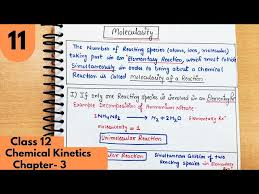 11
Molecularity
The Number of Reacting Species (atoms, ions, molecules)
taking part in an Elementary Reaction, which must collide
Simultaneously in order to bring about a chemical
Reaction is called molecularity of a Reaction.
1) If only one Reacting species is involved in an Elementary Rx
Example Decomposition of Ammonium Nitrite
NH4NO2 → N2 + 2H2O Elementary Rx
Molecularity = 1
Unimolecular Reaction
Class 12
Chemical Kinetics
Chapter- 3
Reaction
Simultaneous Collision of two
Reacting species